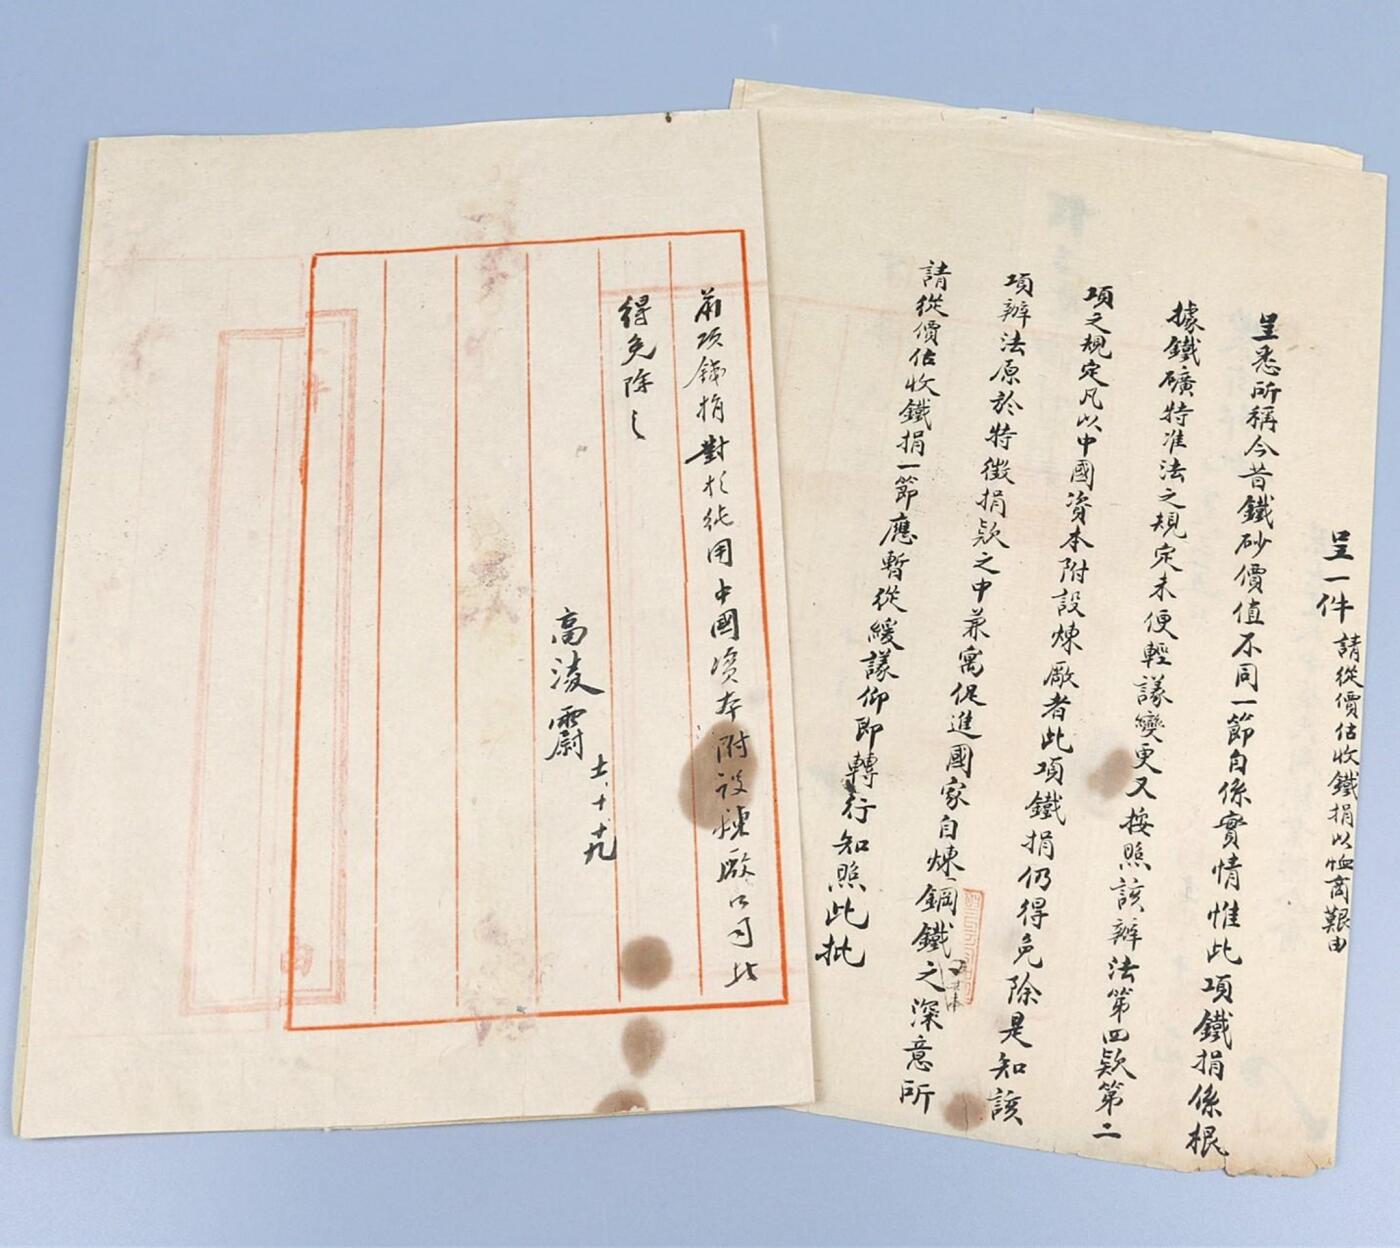 呈一件 請從價估收鐵捐以恤商艱由
呈悉所稱今昔鐵砂價值不同一節自係實情惟此項鐵捐係根
據鐵礦特准法之規定未便輕議變更又按照該辦法第四欵第二
項之規定凡以中國資本附設煉廠者此項鐵捐仍得免除是知該
項辦法原於特徵捐欵之中兼寓促進國家自煉鋼鐵之深意所
請從價估收鐵捐一節應暫從緩議仰即轉行知照此批
前項鐵捐對於純用中國資本附設煉廠公司此
得免除之
高淩霨
十一、十、十九